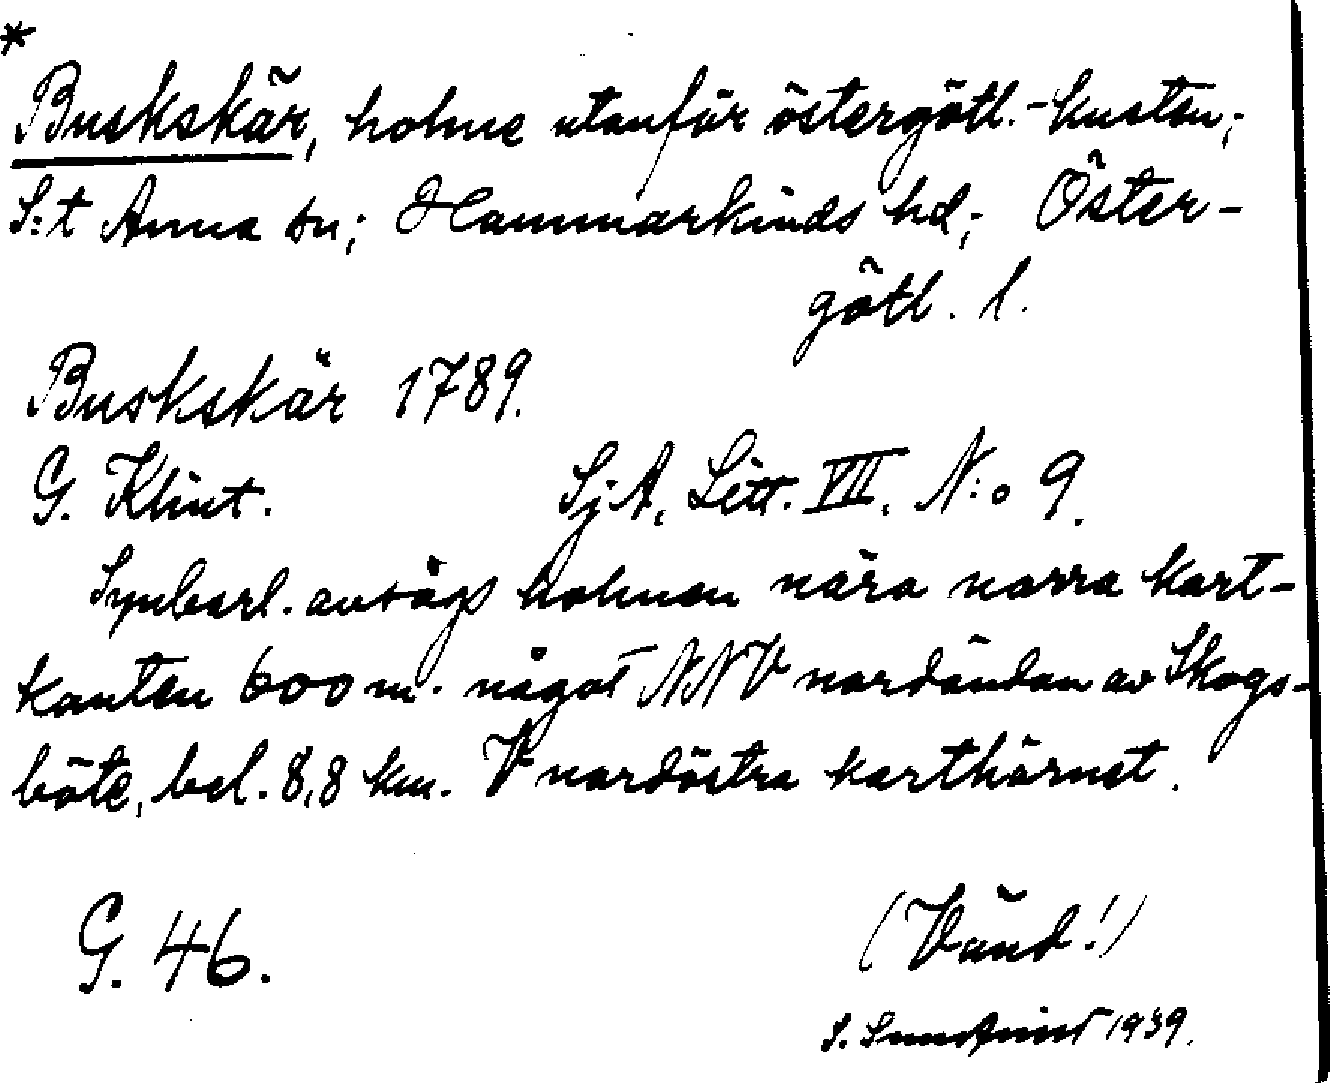 *
Buskskär, holme utanför östergötl.-kusten;
S:t Anna sn; Hammarkinds hd; Öster-
götl. l.
Buskskär 1789.
G. Klint. Sj.A. Litt. VII. N:o 9.
Synbarl. avsågs holmen nära norra kart-
kanten 600 m. något NNV nordändan av Skogs-
böte, bel. 8,8 km. V nordöstra karthörnet.
G. 46. (Vänd!)
S. 1939.